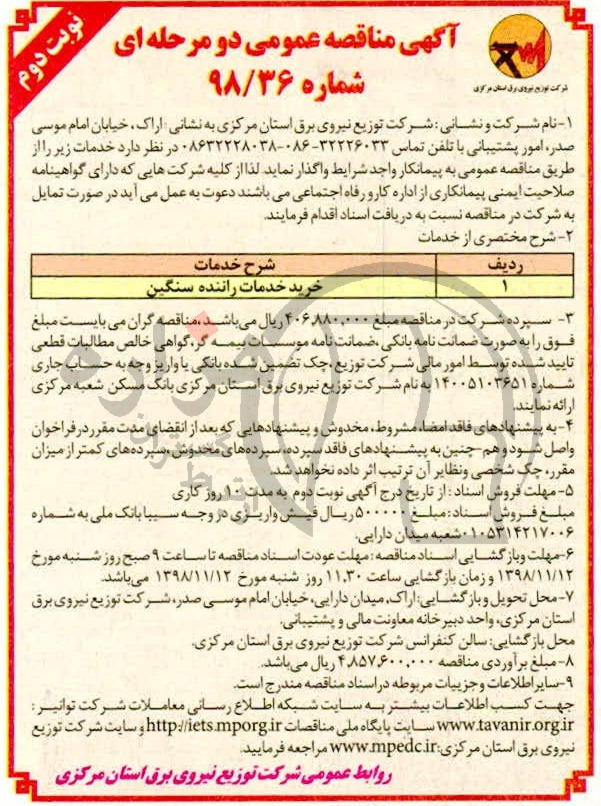 نوبت دوم
آگهی مناقصه عمومی دو مرحله ای
شماره ۹۸/۳۶
شرکت توزیع نیروی برق استان مرکزی
۱-نام شرکت و نشانی : شرکت توزیع نیروی برق استان مرکزی به نشانی : اراک ، خیابان امام موسی
صدر، امور پشتیبانی با تلفن تماس ۳۲۲۲۶۰۳۳-۰۸۶-۰۸۶۳۲۲۲۸۰۳۸ در نظر دارد خدمات زیر را از
طریق مناقصه عمومی به پیمانکار واجد شرایط واگذار نماید. لذا از کلیه شرکت هایی که دارای گواهینامه
صلاحیت ایمنی پیمانکاری از اداره کار و رفاه اجتماعی می باشند دعوت به عمل می آید در صورت تمایل
به شرکت در مناقصه نسبت به دریافت اسناد اقدام فرمایند.
۲-شرح مختصری از خدمات
ردیف شرح خدمات
۱ خرید خدمات راننده سنگین
۳- سپرده شرکت در مناقصه مبلغ ۴۰۶,۸۸۰,۰۰۰ ریال می‌باشد ،مناقصه گران می بایست مبلغ
فوق را به صورت ضمانت نامه بانکی ،ضمانت نامه موسسات بیمه گر، گواهی خالص مطالبات قطعی
تایید شده توسط امور مالی شرکت توزیع ،چک تضمین شده بانکی یا واریز وجه به حساب جاری
شماره ۱۴۰۰۵۱۰۳۶۵۱ به نام شرکت توزیع نیروی برق استان مرکزی بانک مسکن شعبه مرکزی
ارائه نمایند.
۴-به پیشنهادهای فاقد امضا، مشروط، مخدوش و پیشنهادهایی که بعد از انقضای مدت مقرر در فراخوان
واصل شود و هم-چنین به پیشنهادهای فاقد سپرده، سپرده‌های مخدوش، سپرده‌های کمتر از میزان
مقرر، چک شخصی و نظایر آن ترتیب اثر داده نخواهد شد.
۵-مهلت فروش اسناد : از تاریخ درج آگهی نوبت دوم به مدت ۱۰ روز کاری
مبلغ فروش اسناد : مبلغ ۵۰۰۰۰۰ ریال فیش واریزی در وجه سیبا بانک ملی به شماره
۰۱۰۵۳۱۴۲۱۷۰۰۶شعبه میدان دارایی.
۶-مهلت و بازگشایی اسناد مناقصه : مهلت عودت اسناد مناقصه تا ساعت ۹ صبح روز شنبه مورخ
۱۳۹۸/۱۱/۱۲ و زمان بازگشایی ساعت ۱۱,۳۰ روز شنبه مورخ ۱۳۹۸/۱۱/۱۲ می‌باشد.
۷-محل تحویل و بازگشایی: اراک، میدان دارایی، خیابان امام موسی صدر، شرکت توزیع نیروی برق
استان مرکزی، واحد دبیرخانه معاونت مالی و پشتیبانی.
محل بازگشایی: سالن کنفرانس شرکت توزیع نیروی برق استان مرکزی.
۸-مبلغ برآوردی مناقصه ۴,۸۵۷,۶۰۰,۰۰۰ ریال می‌باشد.
۹-سایر اطلاعات و جزییات مربوطه در اسناد مناقصه مندرج است.
جهت کسب اطلاعات بیشتر به سایت شبکه اطلاع رسانی معاملات شرکت توانیر :
www.tavanir.org.ir سایت پایگاه ملی مناقصات http://iets.mporg.ir و سایت شرکت توزیع
نیروی برق استان مرکزی: www.mpedc.ir مراجعه فرمایید.
روابط عمومی شرکت توزیع نیروی برق استان مرکزی